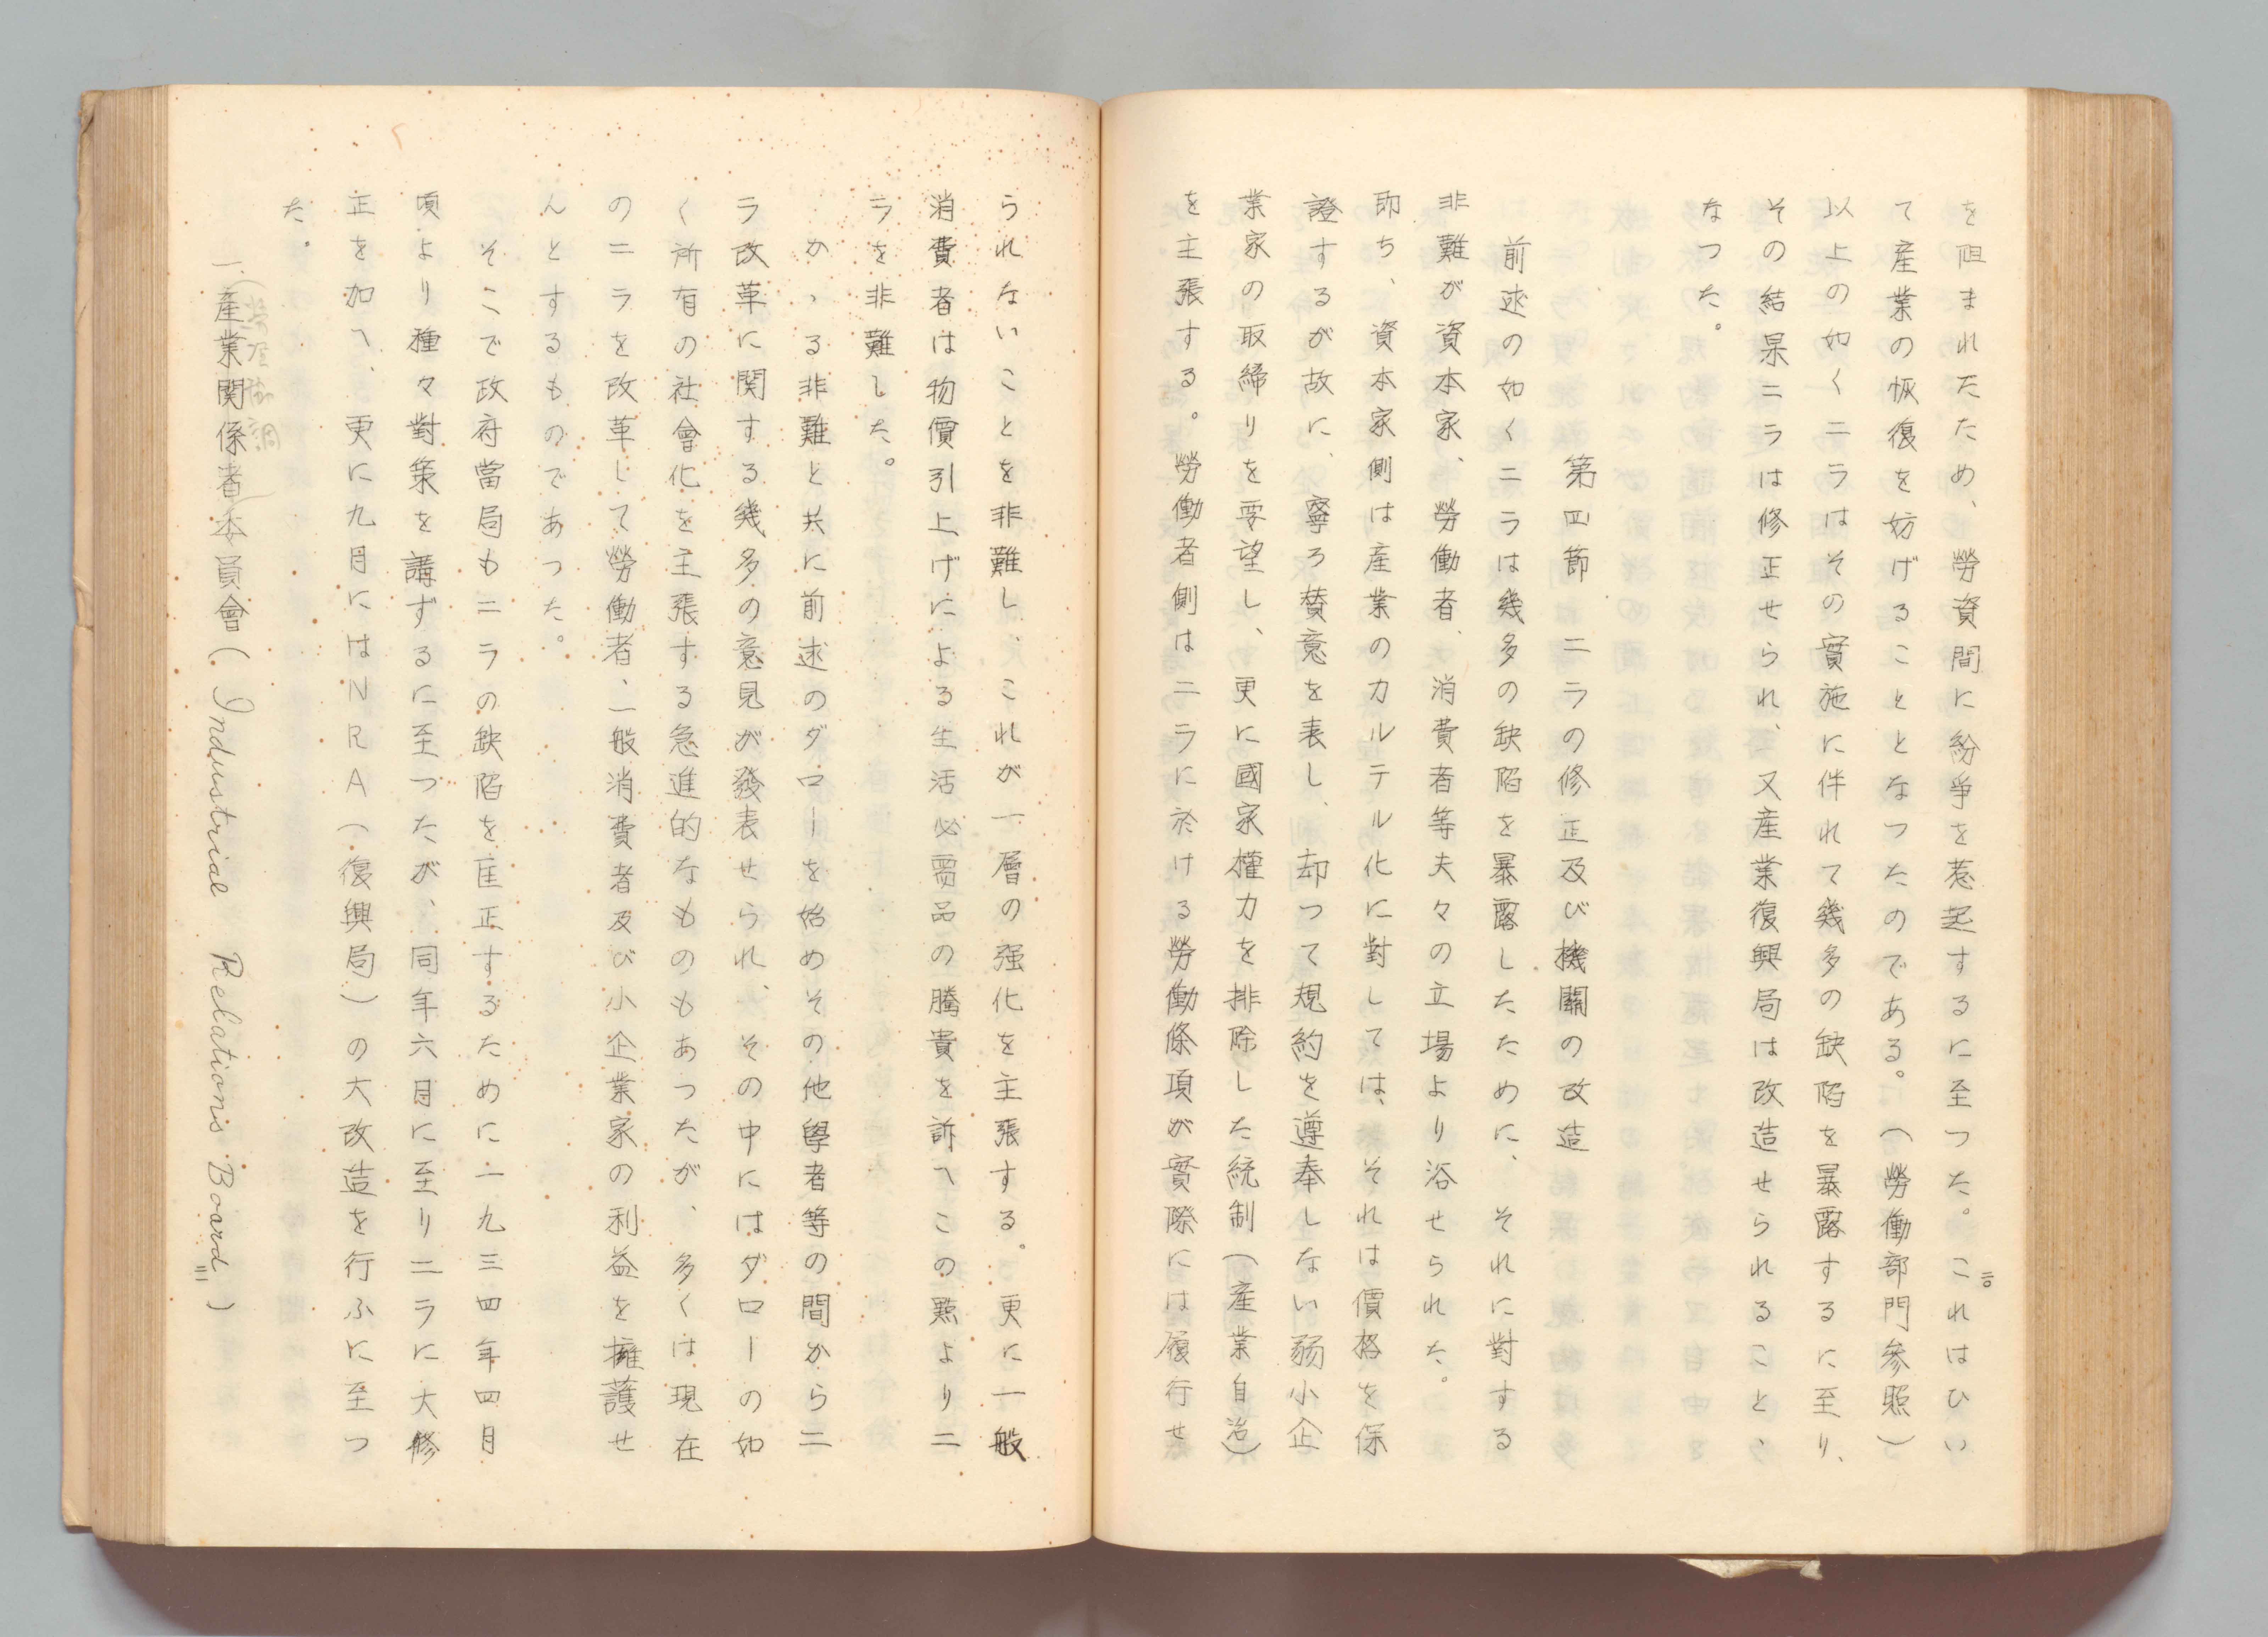 を阻まれたため、勞資間に紛爭を惹起するに至つた。これはひい
二〇
て産業の恢復を妨げることとなつたのである。(勞働部門參照)
以上の如くニラはその實施に伴れて幾多の缺陷を暴露するに至り、
その結果ニラは修正せられ、又産業復興局は改造せられること、
なつた。
第四節 ニラの修正及び機關の改造
前述の如くニラは幾多の缺陷を暴露したために、それに對する
非難が資本家、勞働者、消費者等夫々の立場より浴せられた。
即ち、資本家側は産業のカルテル化に對しては、それは價格を保
證するが故に、寧ろ賛意を表し、却つて規約を遵奉しない弱小企
業家の取締りを要望し、更に國家權力を排除した統制(産業自治)
を主張する。勞働者側はニラに於ける勞働條項が實際には履行せ
られないことを非難し、これが一層の强化を主張する。更に一般
消費者は物價引上げによる生活必需品の騰貴を訴へこの點よりニ
ラを非難した。
かゝる非難と共に前述のダローを始めその他學者等の間からニ
ラ改革に関する幾多の意見が發表せられ、その中にはダローの如
く所有の社會化を主張する急進的なものもあつたが、多くは現在
のニラを改革して勞働者、一般消費者及び小企業家の利益を擁護せ
んとするものであつた。
そこで政府當局もニラの缺陷を匡正するために一九三四年四月
頃より種々對策を講ずるに至つたが、同年六月に至りニラに大修
正を加へ、更に九月にはNRA(復興局)の大改造を行ふに至つ
た。
(勞资協調)
一、産業関係者委員會(Industrial Relations Board)
二一